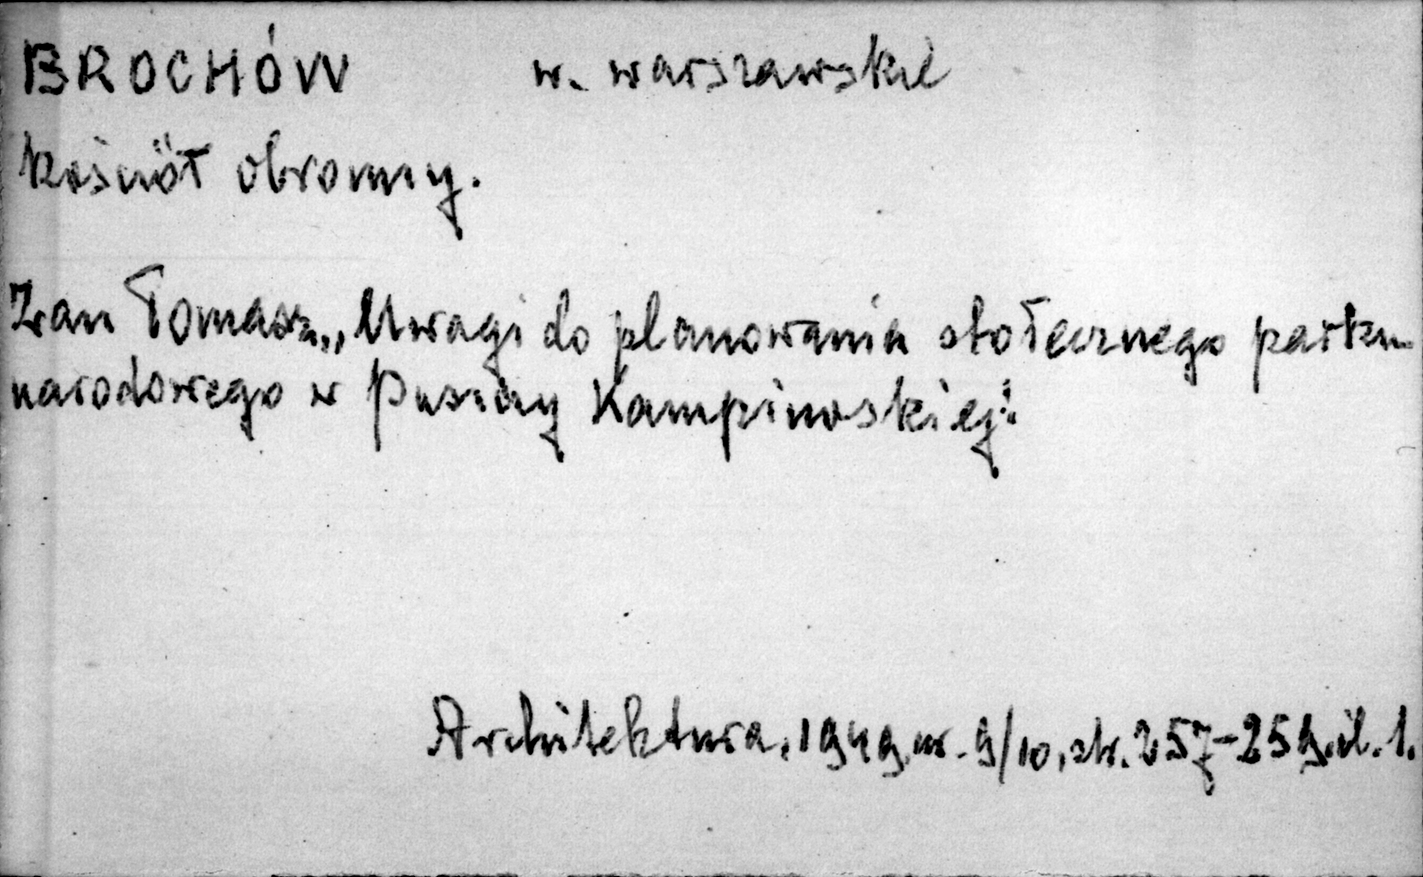 BROCHÓW w. warszawskie
kościół obronny.
Zan Tomasz., „Uwagi do planowania stołecznego parku
narodowego w Puszczy Kampinoskiej“
Architektura, 1949, nr. 9/10, str. 257-259, il. 1.